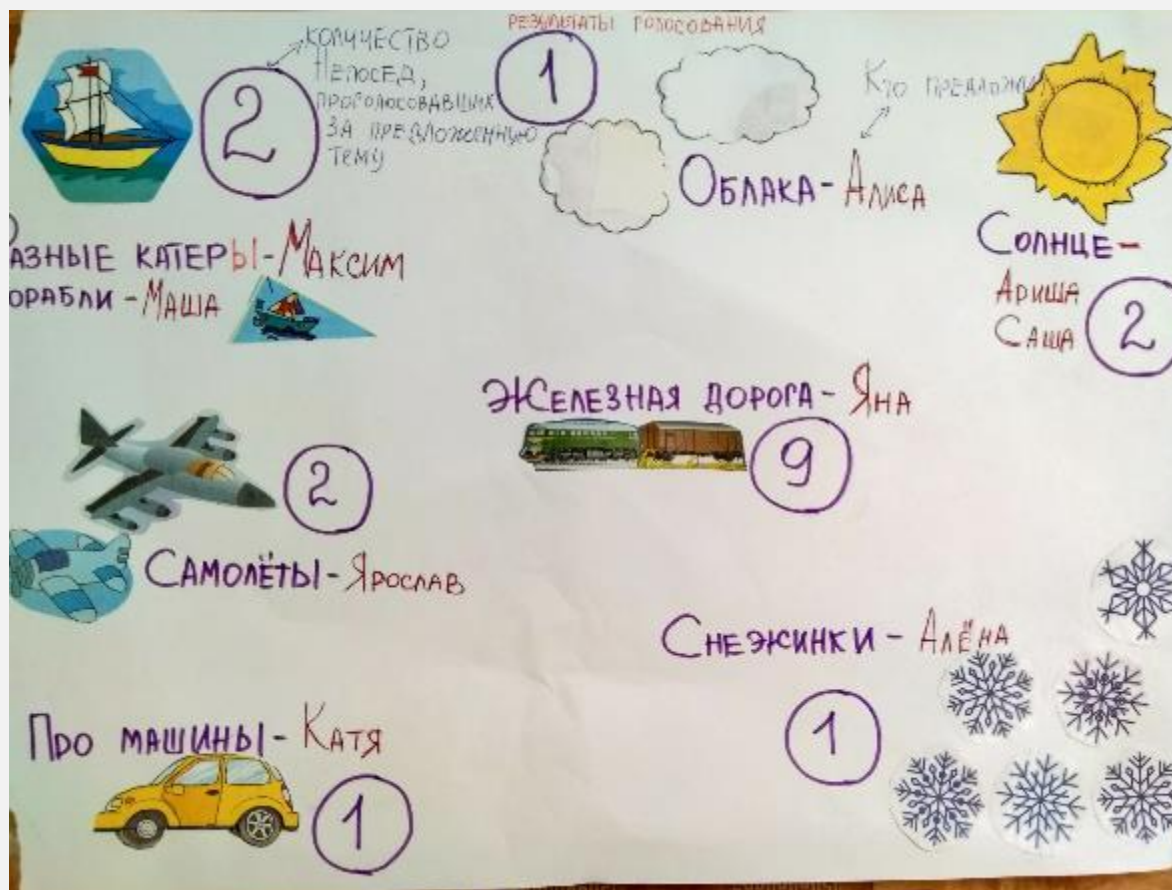 РЕЗУЛЬТАТЫ ГОЛОСОВАНИЯ
2
КОЛИЧЕСТВО
НЕПОСЕД,
ПРОГОЛОСОВАВШИХ
ЗА ПРЕДЛОЖЕННУЮ
ТЕМУ
1
КТО ПРЕДЛОЖИЛ
ОБЛАКА - АЛИСА
АЗНЫЕ КАТЕРЫ - МАКСИМ
ОРАБЛИ - МАША
СОЛНЦЕ -
АРИША
САША
2
ЖЕЛЕЗНАЯ ДОРОГА - ЯНА
9
2
САМОЛЁТЫ - ЯРОСЛАВ
СНЕЖИНКИ - АЛЁНА
1
ПРО МАШИНЫ - КАТЯ
1